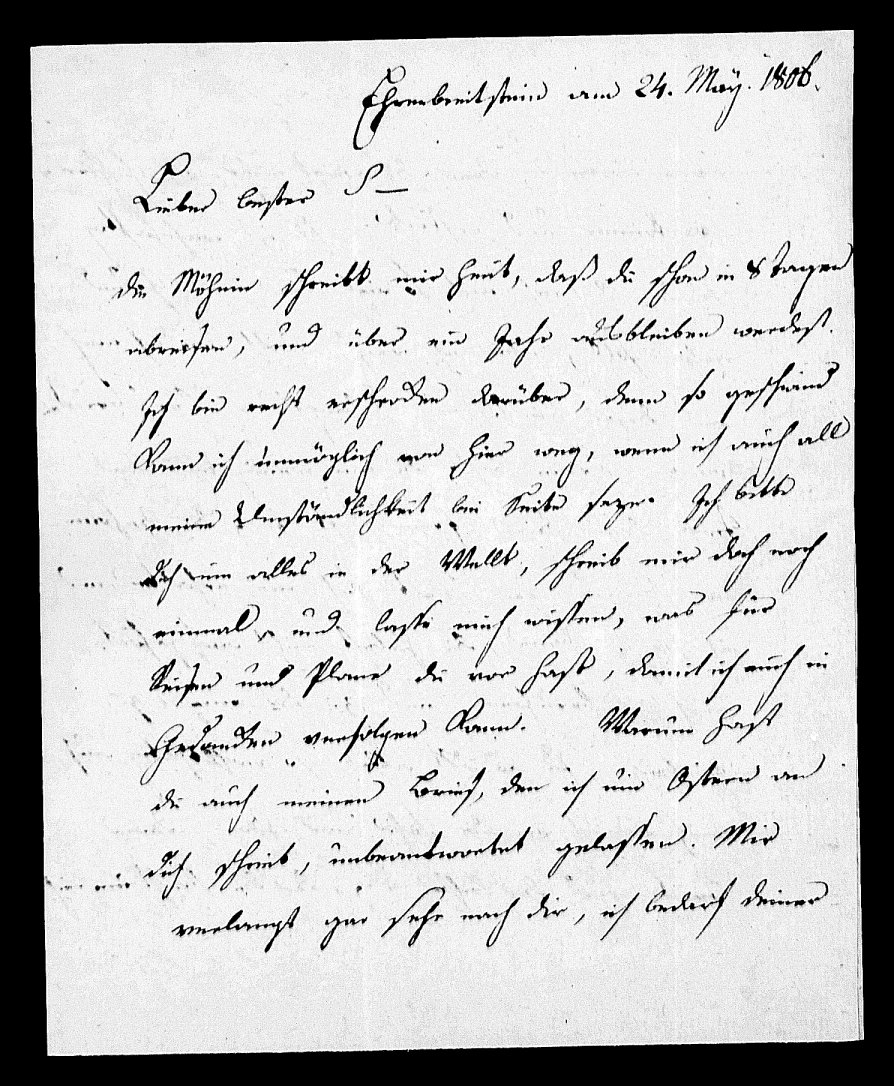 Ehrenbreitstein am 24. Maÿ. 1806.
Lieber bester S—
die Möhnin schreibt mir heut, daß du schon in 8 Tagen
abreisen, und über ein Jahr ausbleiben werdest.
Ich bin recht erschrocken darüber, denn so geschwind
kann ich unmöglich von hier weg, wenn ich auch all
meine Umständlichkeit bei Seite seze. Ich bitte
dich um alles in der Wellt, schreib mir doch noch
einmal, und lasse mich wissen, was für
Reisen und Plane du vor hast, damit ich euch in
Gedanken verfolgen kann. Warum hast
du auch meinen Brief, den ich um Ostern an
dich schrieb, unbeantwortet gelassen. Mir
verlangt gar sehr nach dir, ich bedarf deiner